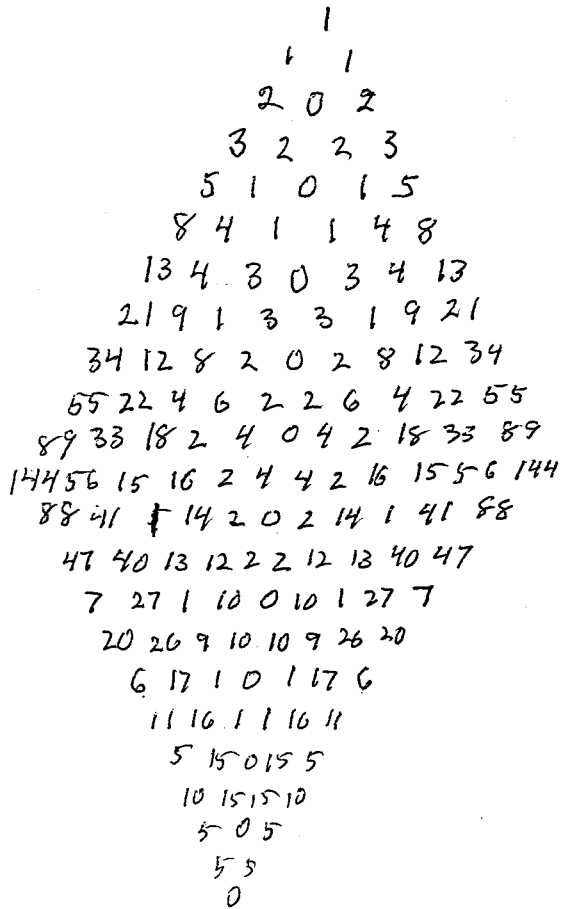 1
1 1
2 0 2
3 2 2 3
5 1 0 1 5
8 4 1 1 4 8
13 4 3 0 3 4 13
21 9 1 3 3 1 9 21
34 12 8 2 0 2 8 12 34
55 22 4 6 2 2 6 4 22 55
89 33 18 2 4 0 4 2 18 33 89
144 56 15 16 2 4 4 2 16 15 56 144
88 41 1 14 2 0 2 14 1 41 88
47 40 13 12 2 2 12 13 40 47
7 27 1 10 0 10 1 27 7
20 26 9 10 10 9 26 20
6 17 1 0 1 17 6
11 16 1 1 16 11
5 15 0 15 5
10 15 15 10
5 0 5
5 5
0